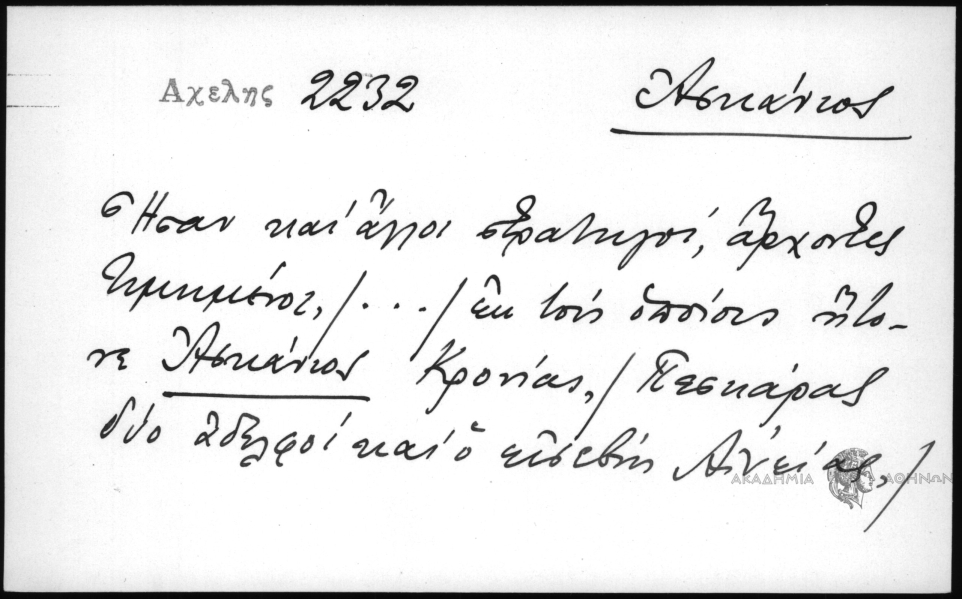 Αχελης 2232 Ἀσκάνιος
Ἦσαν καὶ ἄλλοι στρατηγοί, ἄρχοντες
τιμημένοι, /.../ ἐκ τοὺς ὁποίους ἤτο-
νε Ἀσκάνιος Κρονίας, / Πεσκάρας
δύο ἀδελφοί καὶ ὁ εὐσεβὴς Αἰνείας, /
ΑΚΑΔΗΜΙΑ ΑΘΗΝΩΝ